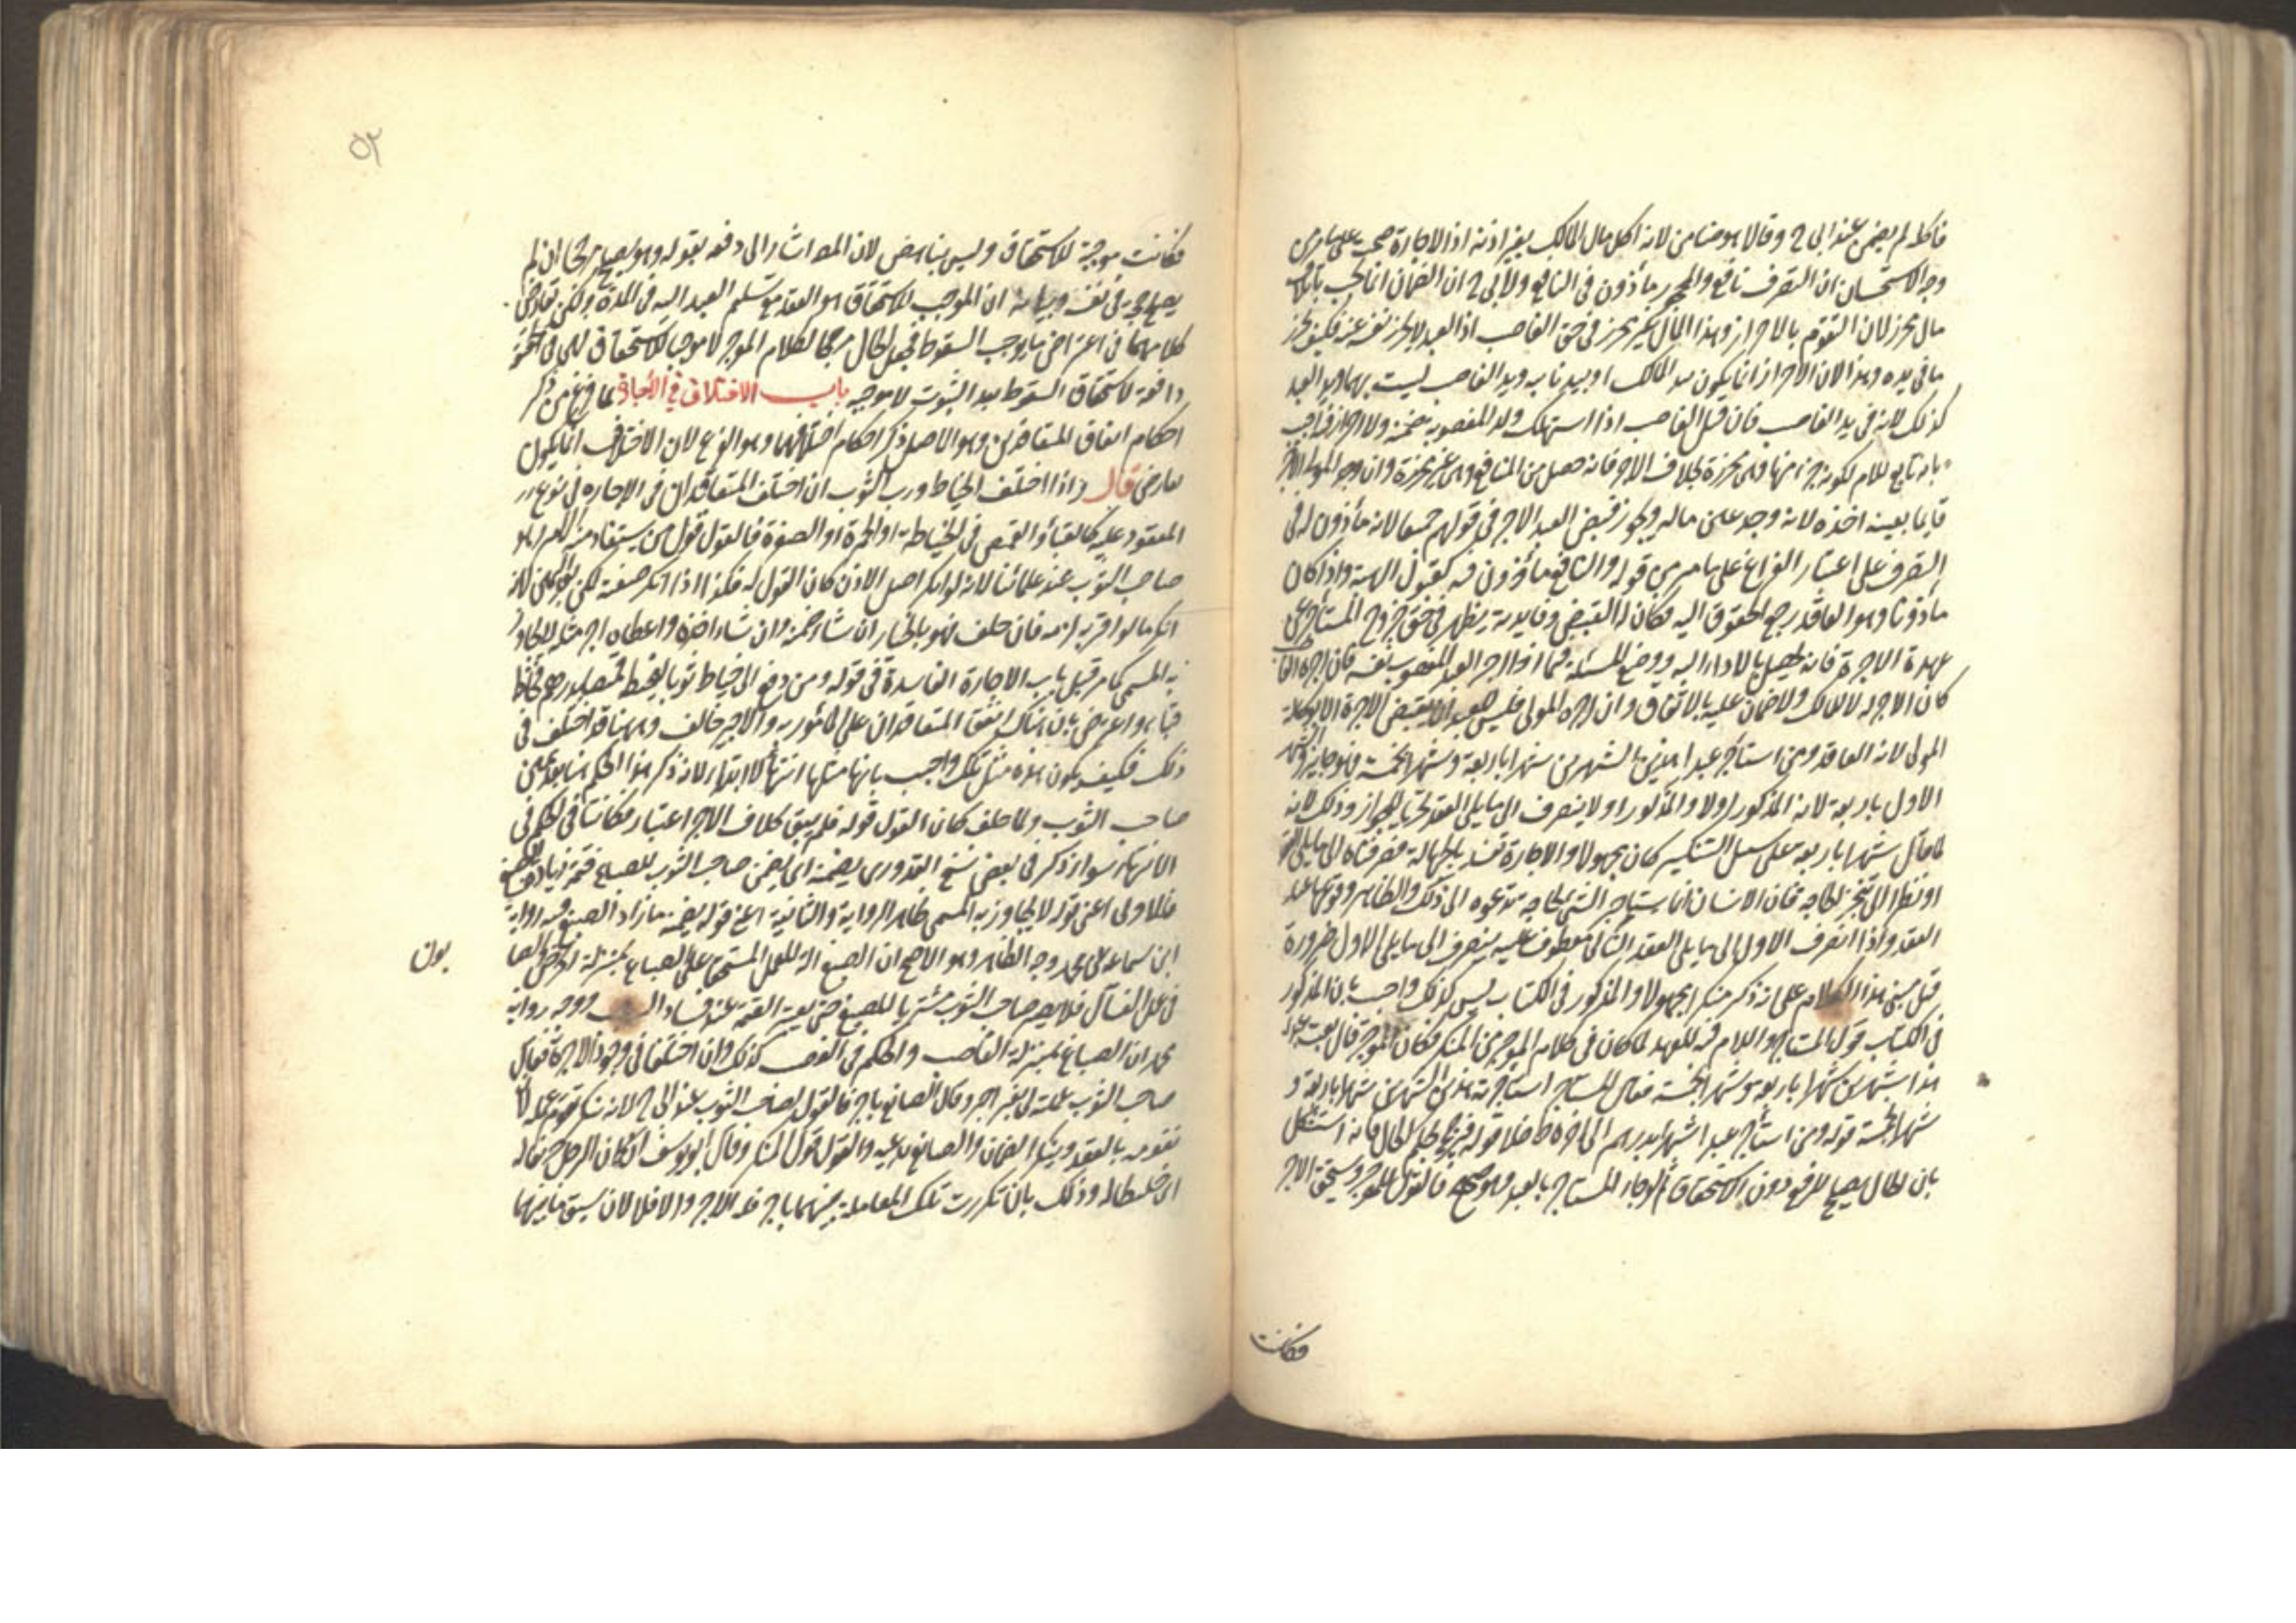 فاكله لم يضمن عند ابى ح وقالا هو ضامن لانه اكل مال المالك بغير اذنه اذ الاجارة صحت على ما مر من
وجه الاستحسان ان التصرف نافع والمحجور مأذون فى النافع ولابى ح ان الضمان انما يجب باتلاف
مال محرز لان التقوم بالاحراز وهذا المال غير محرز فى حق الغاصب اذ العبد لا يحرز نفسه عنه فكيف يحرز
ما فى يده وهذا لان الاحراز انما يكون بيد المالك او بيد نائبه ويد الغاصب ليست بهما ويد العبد
كذلك لانه فى يد الغاصب فان قيل الغاصب اذا استهلك ولد المغصوبة يضمنه ولا احراز فيه اجيب
بانه تابع للام لكونه جزء منها وهى محرزة بخلاف الاجر فانه حصل من المنافع وهى غير محرزة وان وجد المولى الاجر
قايما بعينه اخذه لانه وجد عين ماله ويجوز قبض العبد الاجر فى قولهم جميعا لانه مأذون له فى
التصرف على اعتبار الفراغ على ما مر من قوله والنافع مأذون فيه كقبول الهبة واذا كان
مأذونا وهو العاقد رجع الحقوق اليه فكان له القبض وفايدته يظهر فى حق خروج المستأجر عن
عهدة الاجرة فانه يحصل بالاداء اليه ووضع المسئلة فيما اذا اجر العبد المغصوب نفسه فان اجره الغاصب
كان الاجر له لا للمالك ولا ضمان عليه بالاتفاق وان اجره المولى فليس للعبد ان يقبض الاجرة الا بوكالة
المولى لانه العاقد ومن استأجر عبدا هذين الشهرين شهرا باربعة وشهرا بخمسة فهو جايز والشهر
الاول باربعة لان المذكور اولا ينصرف الى ما يلى العقد تحريا للجواز وذلك لانه
لما قال شهرا باربعة على سبيل التنكير كان مجهولا والاجارة تفسد بالجهالة فصرفناه الى ما يلى العقد
او نظرا الى تنجز الحاجة فان الانسان انما يستأجر الشئ لحاجة تدعوه الى ذلك والظاهر وقوعها عند
العقد واذا انصرف الاول الى ما يلى العقد والثانى معطوف عليه ينصرف الى ما يلى الاول ضرورة
قيل مبنى هذا الكلام على انه ذكر منكرا مجهولا والمذكور فى الكتاب ليس كذلك واجيب بان المذكور
فى الكتاب قول المستأجر واللام فيه للعهد لما كان فى كلام الموجر من المنكر فكان الموجر قال بعت عبدى
هذا شهرين شهرا باربعة وشهرا بخمسة فقال المستأجر استأجرته هذين الشهرين شهرا باربعة و
شهرا بخمسة قوله ومن استأجر عبدا شهرا بدرهم الى اخره ظ خلا قوله فيترجح بحكم الحال فانه استشكل
بان الحال يصلح للدفع دون الاستحقاق ولو جاء المستأجر بالعبد وهو صحيح فالقول للموجر ويستحق الاجر
فكانت
٥٢
فكانت موجبة للاستحقاق وليس بناهض لان المصـ اشار الى دفعه بقوله وهو يصلح مرجحا ان لم
يصلح حجة فى نفسه وبيانه ان الموجب للاستحقاق هو العقد مع تسليم العبد اليه فى المدة ولكن تعارض
كلامهما فى اعتراض ما يوجب السقوط فجعل الحال مرجحا لكلام الموجر لا موجبا للاستحقاق فهى فى الحقيقة
دافعة لاستحقاق السقوط بعد الثبوت لا موجبة باب الاختلاف فى الاجارة لما فرغ من ذكر
احكام اتفاق المتعاقدين وهو الاصل ذكر احكام اختلافهما وهو الفرع لان الاختلاف انما يكون
بعارض قال واذا اختلف الخياط ورب الثوب ان اختلف المتعاقدان فى الاجارة فى نوع
المعقود عليه كالقباء والقميص فى الخياطة او الحمرة او الصفرة فالقول قول من يستفاد منه الامر وهو
صاحب الثوب عند علمائنا لانه لو انكر اصل الاذن كان القول له فكذا اذا انكر صفته لكن يحلف لانه
انكر ما لو اقر به لزمه فان حلف فهو بالخيار ان شاء ضمنه وان شاء اخذه واعطاه اجر مثله لا يجاوز
به المسمى كما مر قبل باب الاجارة الفاسدة فى قوله ومن دفع الى خياط ثوبا ليخيط قميصا بدرهم فخاطه
قباء واعترض بان هناك اتفق المتعاقدان على المأمور به والاجير خالف وههنا قد اختلف فى
ذلك فكيف يكون هذه مثل تلك واجيب بانها مثلها انتهاء لا ابتداء لانه ذكر هذا الحكم هنا بعد يمين
صاحب الثوب ولما حلف كان القول قوله فلم يبق لخلاف الاجر اعتبار فكانتا فى الحكم فى
الانتهاء سواء ذكر فى بعض نسخ القدورى يضمنه اى يضمن صاحب الثوب للصباغ قيمة زيادة الصبغ
فالاولى اعنى قوله لا يجاوز به المسمى ظاهر الرواية والثانية اعنى قوله يضمنه ما زاد الصبغ فيه رواية
ابن سماعة عن محمد وجه الظاهر وهو الاصح ان الصبغ الة للعمل المستحق على الصباغ بمنزلة الحرض والصا
بون
فى عمل الغسال فلا يصير صاحب الثوب مشتريا للصبغ حتى يعتبر القيمة عند فساد السبب ووجه رواية
محمد ان الصباغ بمنزلة الغاصب والحكم فى الغصب كذلك وان اختلفا فى وجود الاجرة فقال
صاحب الثوب عملته لى بغير اجر وقال الصانع باجر فالقول لصاحب الثوب عند ابى ح لانه ينكر تقوم عمله اذ
تقومه بالعقد وينكر الضمان والصانع يدعيه والقول قول المنكر وقال ابو يوسف ان كان الرجل حريفا له
اى خليطا له وذلك بان تكررت تلك المعاملة بينهما باجر فله الاجر والا فلا لان سبق ما بينهما